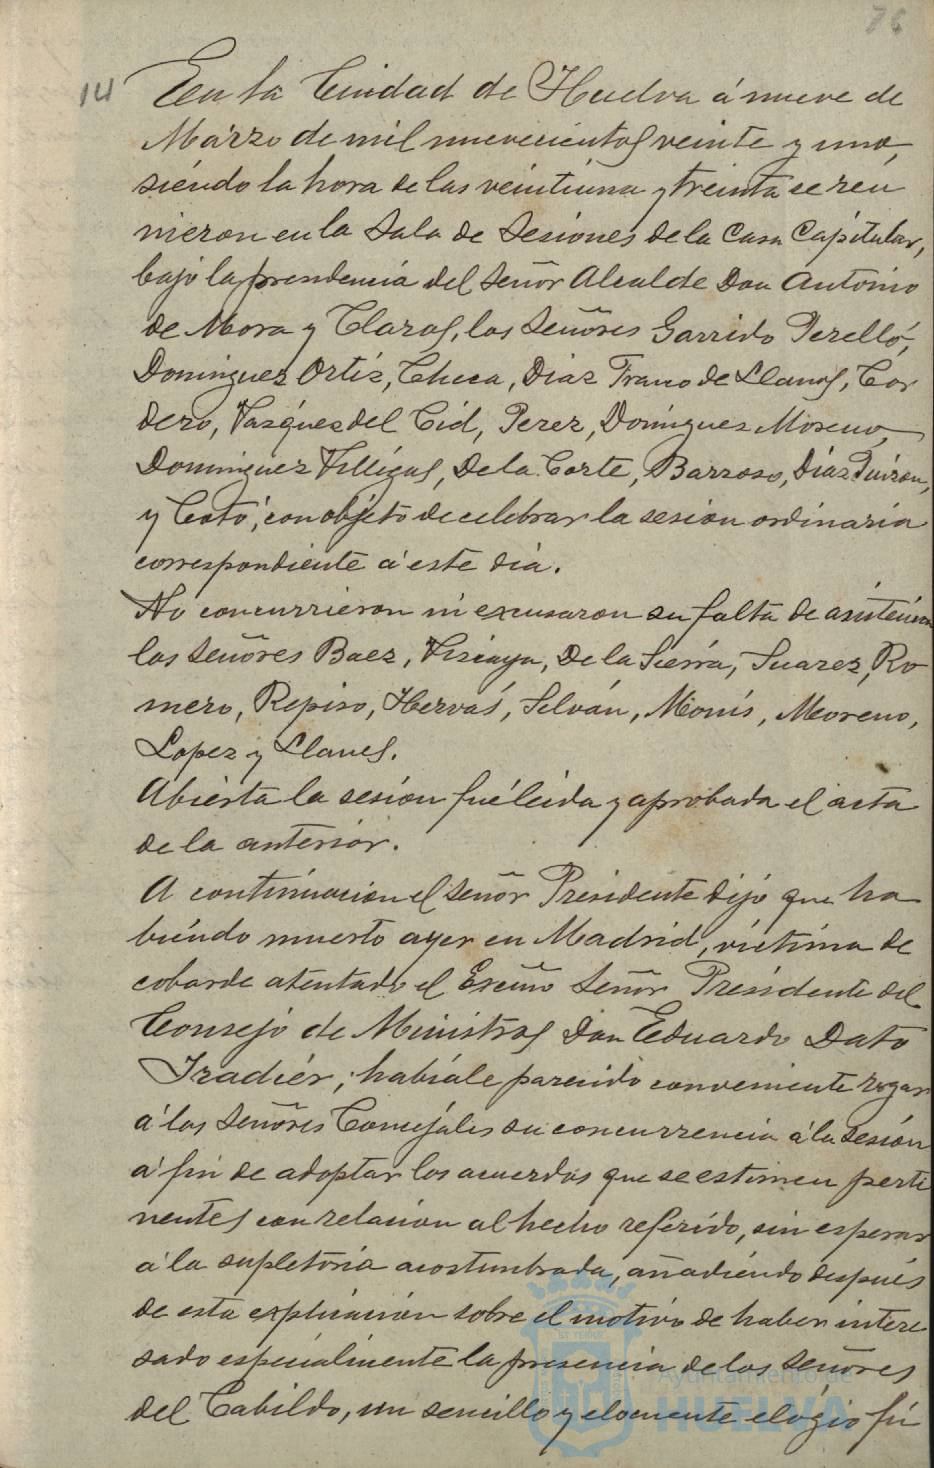 76
14 En la Ciudad de Huelva á nueve de
Marzo de mil nuevecientos veinte y uno,
siendo la hora de las veintiuna y treinta se reu
nieron en la Sala de Sesiones de la Casa Capitular,
bajo la presidencia del Señor Alcalde Don Antonio
de Mora y Claros, los Señores Garrido Perelló,
Dominguez Ortiz, Checa, Diaz Franco de Llanos, Cor
dero, Vazquez del Cid, Perez, Dominguez Moreno,
Dominguez Villegas, De la Corte, Barroso, Diaz
y Cotó, con objeto de celebrar la sesion ordinaria
correspondiente á este dia.
No concurrieron ni excusaron su falta de asistencia
los Señores Baez, Vizcaya, De la Sierra, Suarez, Ro
mero, Repiso, Hervás, Selván, Monís, Moreno,
Lopez y Llanes.
Abierta la sesion fué leida y aprobada el acta
de la anterior.
A continuacion el Señor Presidente dijo que ha
biendo muerto ayer en Madrid, victima de
cobarde atentado el Excmo Señor Presidente del
Consejo de Ministros Don Eduardo Dato
Iradiér; habíale parecido conveniente rogar
á los Señores Concejáles su concurrencia á la Sesión
á fin de adoptar los acuerdos que se estimen perti
nentes con relacion al hecho referido, sin esperar
á la supletoria acostumbrada, añadiendo después
de esta explicación sobre el motivo de haber intere
sado especialmente la presencia de los Señores
del Cabildo, un sencillo y elocuente elógio fú
Ayuntamiento de
HUELVA